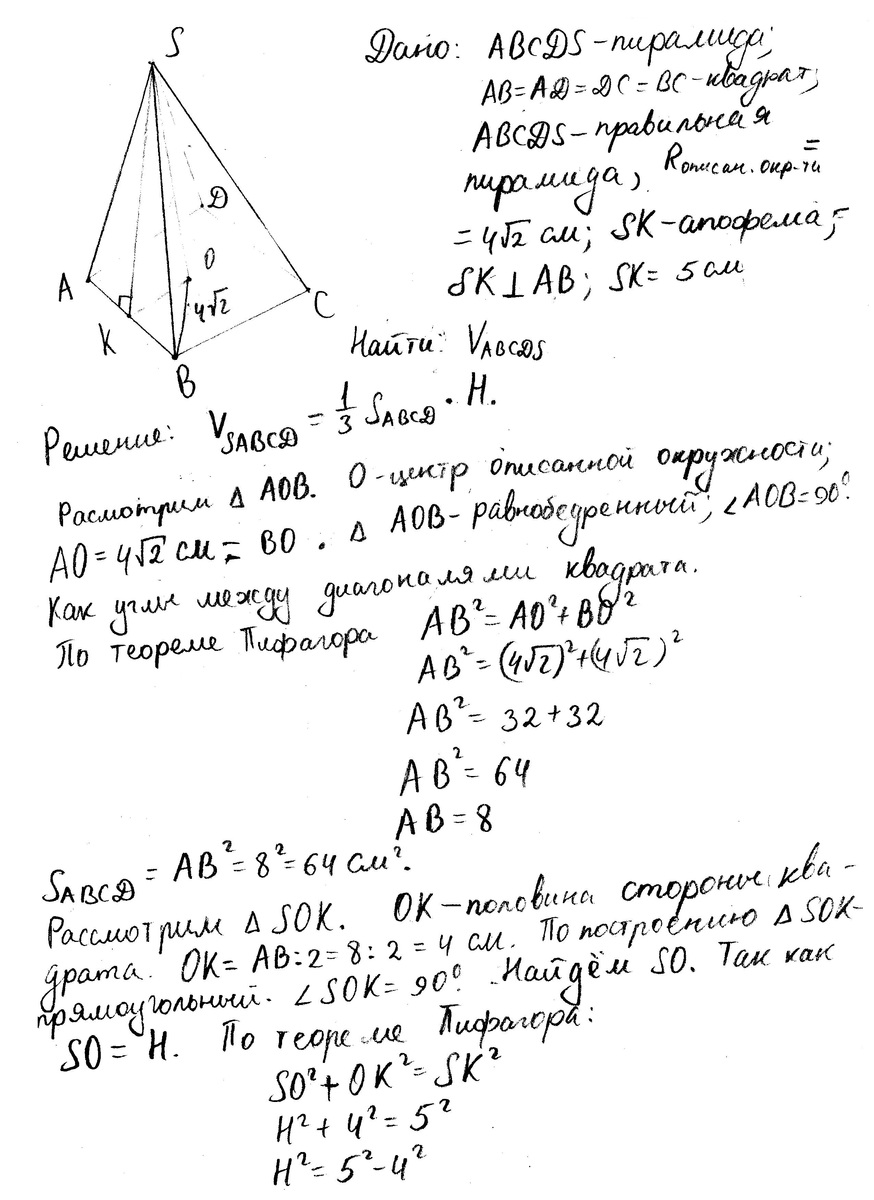 S
Дано: ABCDS - пирамида;
AB = AD = DC = BC - квадрат;
ABCDS - правильная
пирамида, Rописан. окр-ти =
= 4√2 см; SK - апофема;
SK ⊥ AB; SK = 5 см
D
O
A
4√2
C
K
B
Найти: VABCDS
Решение: VSABCD = 1/3 SABCD · H.
Расмотрим △ AOB. O - центр описанной окружности;
AO = 4√2 см = BO. △ AOB - равнобедренный; ∠AOB = 90°.
Как углы между диагоналями квадрата.
По теореме Пифагора AB² = AO² + BO²
AB² = (4√2)² + (4√2)²
AB² = 32 + 32
AB² = 64
AB = 8
SABCD = AB² = 8² = 64 см².
Рассмотрим △ SOK. OK - половина стороны ква-
драта. OK = AB : 2 = 8 : 2 = 4 см. По построению △ SOK -
прямоугольный. ∠SOK = 90°. Найдём SO. Так как
SO = H. По теореме Пифагора:
SO² + OK² = SK²
H² + 4² = 5²
H² = 5² - 4²